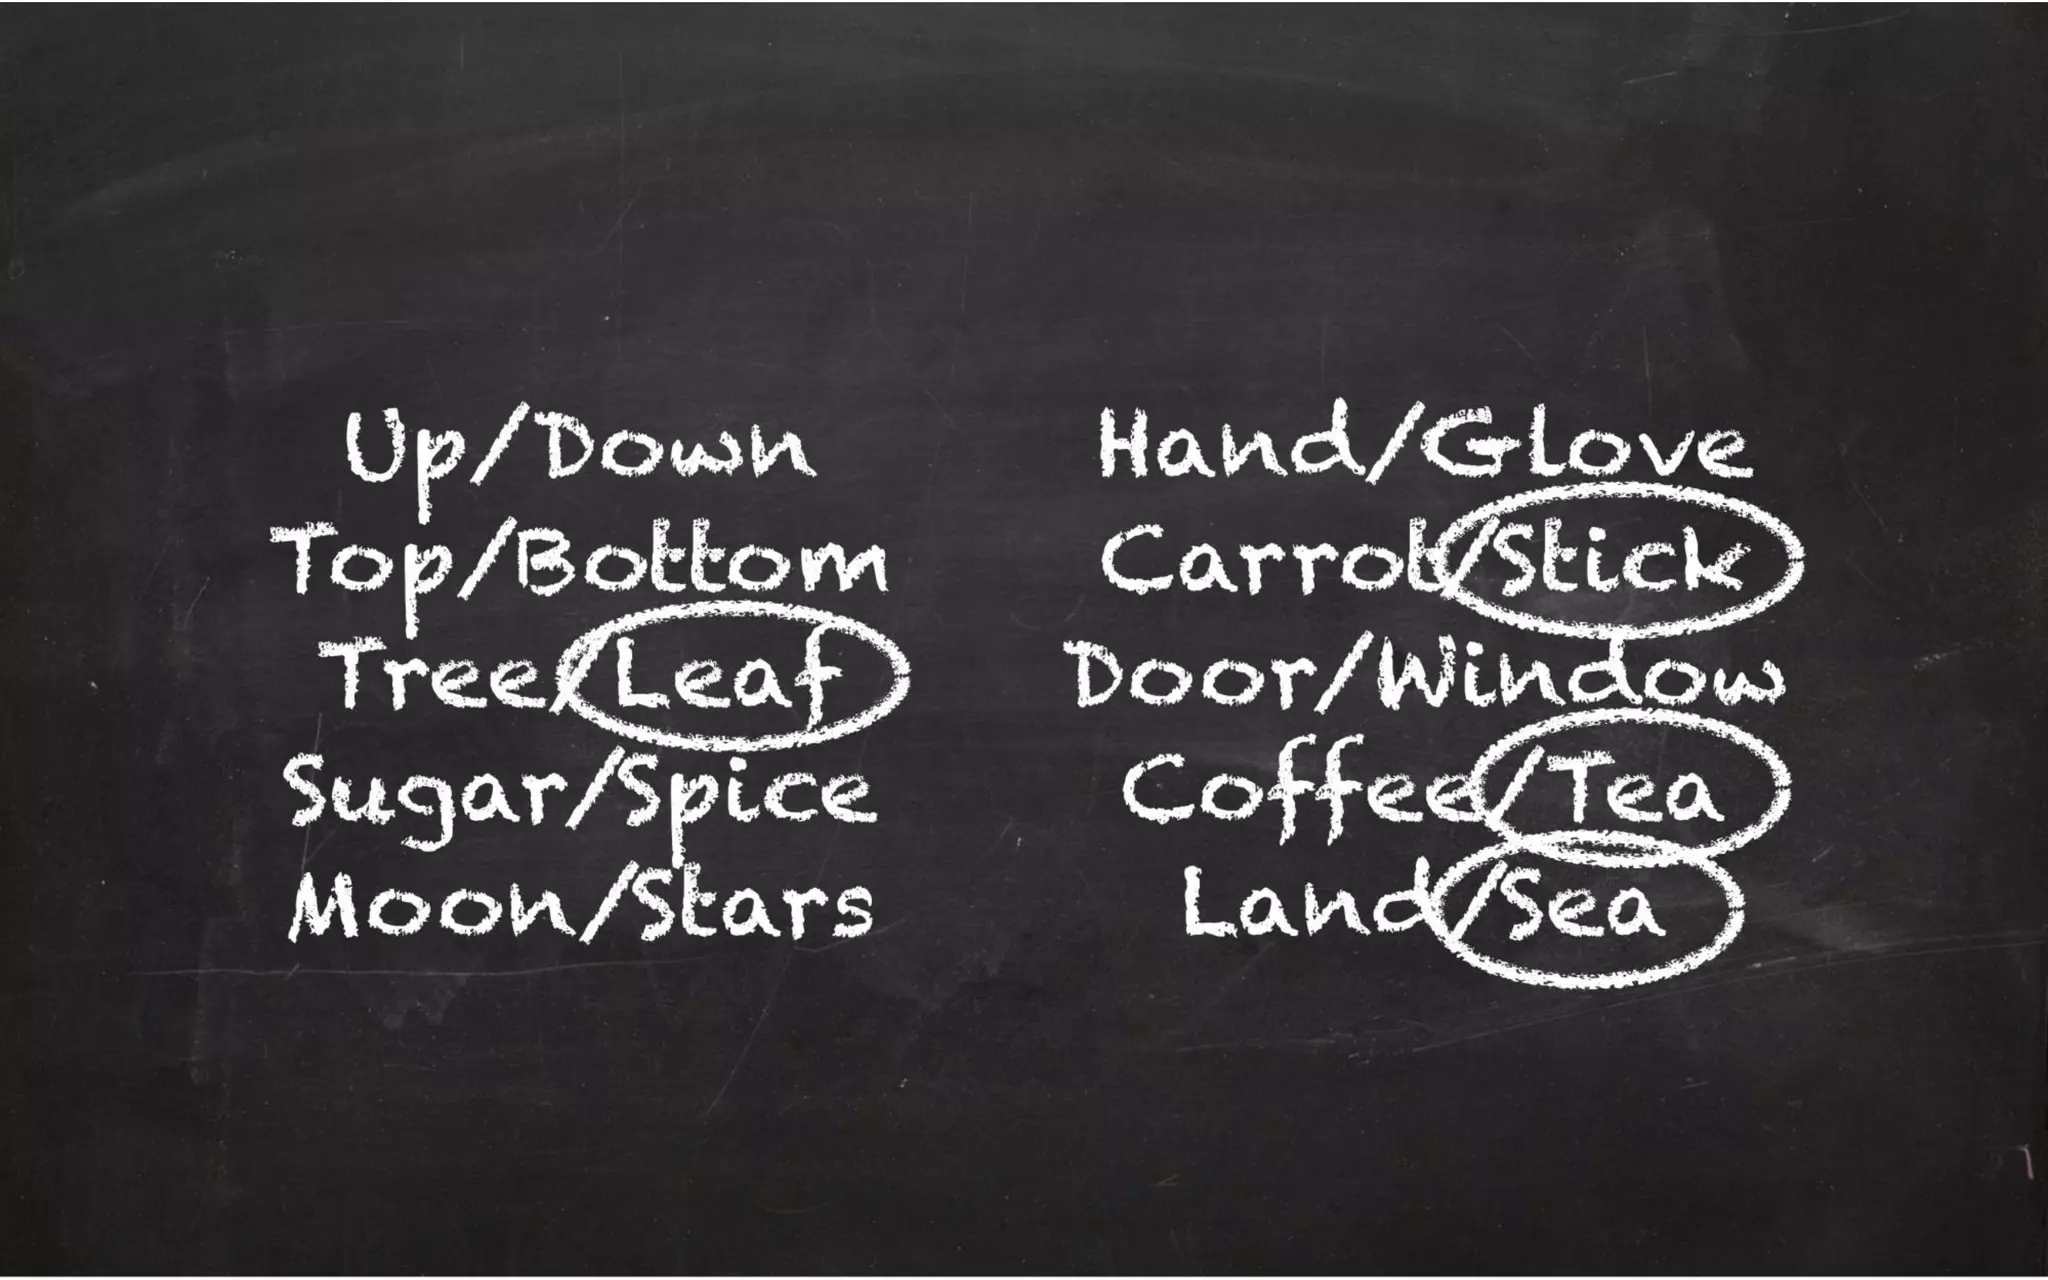 Up/Down
Top/Bottom
Tree/Leaf
Sugar/Spice
Moon/Stars
Hand/Glove
Carrot/Stick
Door/Window
Coffee/Tea
Land/Sea